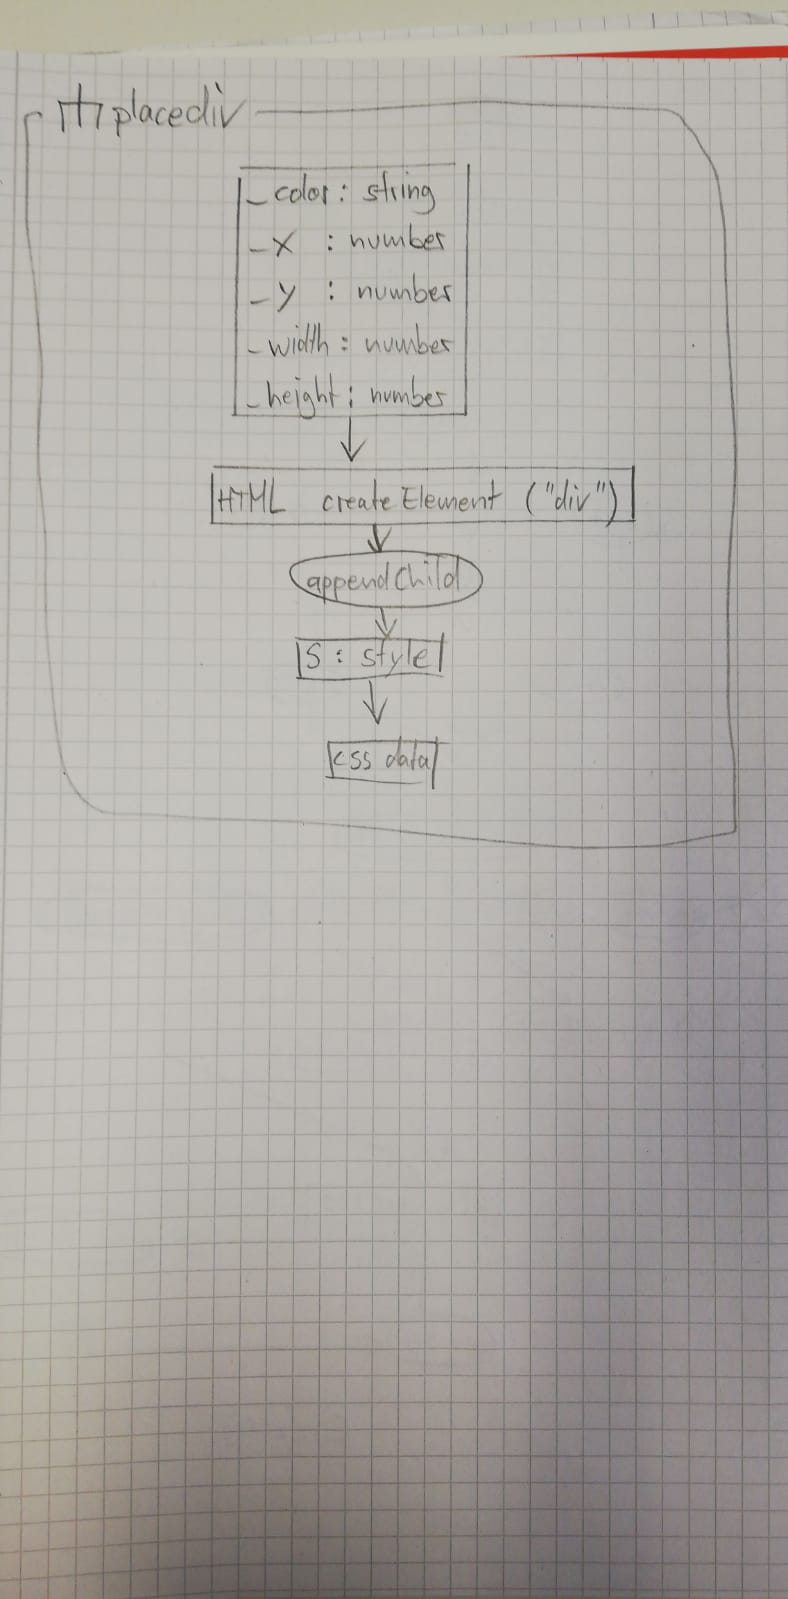 placediv
_color: string
_x : number
_y : number
_width: number
_height: number
HTML createElement ("div")
appendChild
S: style
css data